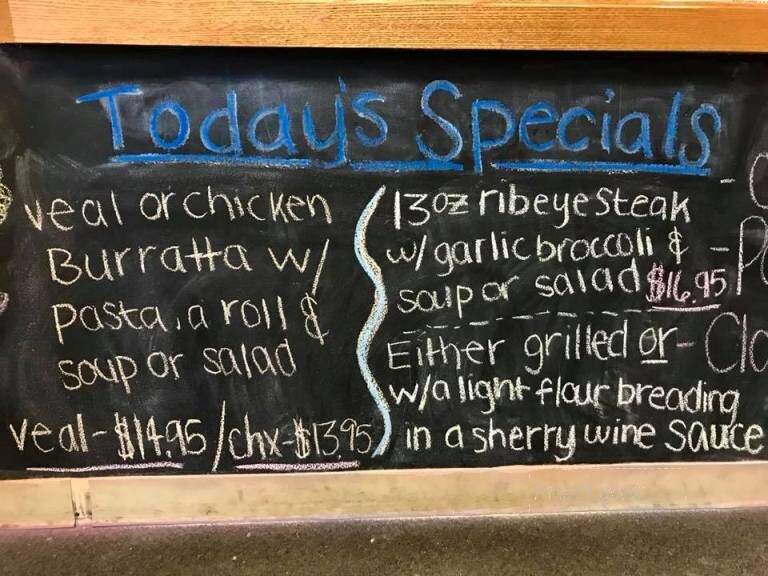 Today's Specials
veal or chicken
Burratta w/
pasta, a roll &
soup or salad
veal-$14.95/chx-$13.95
13oz ribeye steak
w/garlic broccoli &
soup or salad $16.95
Either grilled or
w/a light flour breading
in a sherry wine sauce